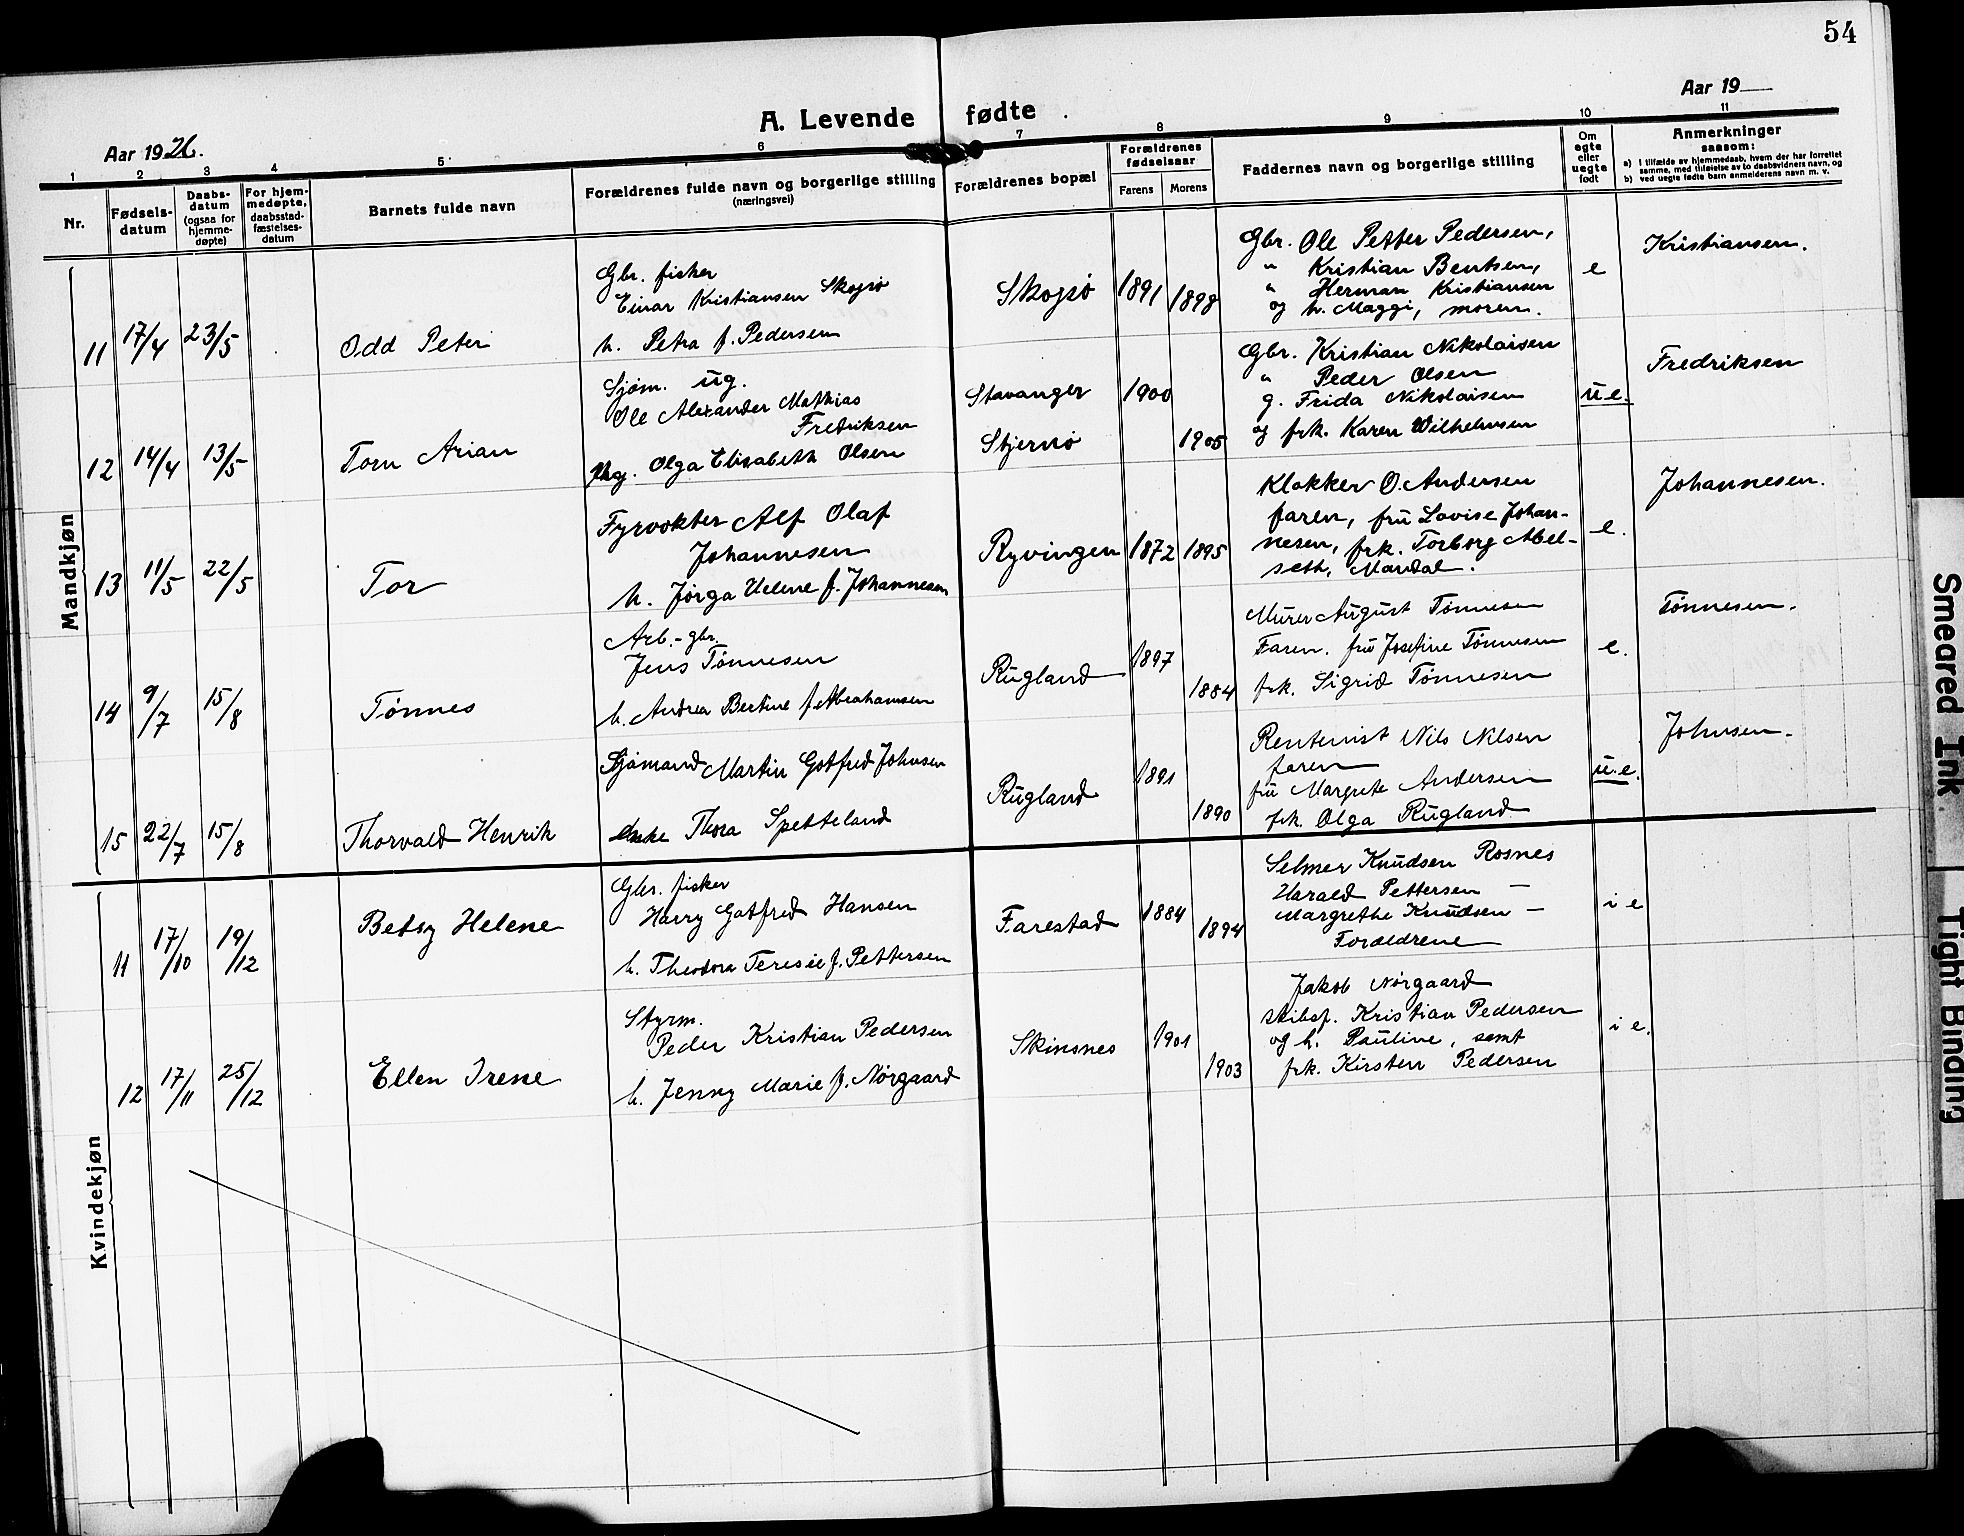 54
Aar 1926.
A. Levende fødte
Aar 19
1 2 3 4 5 6 7 8 9 10 11
Nr.
Fødsels-
datum
Daabs-
datum
(ogsaa for
hjemme-
døpte)
For hjem-
medøpte,
daabsstad-
fæstelses-
datum
Barnets fulde navn
Forældrenes fulde navn og borgerlige stilling
(næringsvei)
Forældrenes bopæl
Forældrenes
fødselsaar
Farens Morens
Faddernes navn og borgerlige stilling
Om
egte
eller
uegte
født
Anmerkninger
saasom:
a) I tilfælde av hjemmedaab, hvem der har forrettet
samme, med tilføielse av to daabsvidners navn, og
b) ved uegte fødte barn anmelderens navn m. v.
Mandkjøn
11 17/4 23/5
Odd Peter
Gbr. fisker
Einar Kristiansen Skogsø
h. Petra f. Pedersen
Skogsø 1891 1898
Gbr. Ole Petter Pedersen,
" Kristian Bentsen,
" Herman Kristiansen
og h. Maggi, moren.
e
Kristiansen.
12 14/4 13/5
Tom Arian
Sjøm. ug.
Ole Alexander Mathias
Fredriksen
Olga Elisabeth Olsen
Stavanger 1900
Stjernø 1905
Gbr. Kristian Nikolaisen
" Peder Olsen
g. Frida Nikolaisen
og frk. Karen Wilhelmsen
u.e.
Fredriksen
13 11/5 22/5
Tor
Fyrvokter Alf Olaf
Johannesen
h. Jørga Helene f. Johannesen
Ryvingen 1872 1895
Klokker O. Andersen
faren, fru Lovise Johan-
nesen, frk. Torborg Abel-
seth, Mandal.
e.
Johannesen.
14 9/7 15/8
Tønnes
Arb.-gbr.
Jens Tønnesen
h. Andrea Bertine f. Abrahamsen
Rugland 1897 1884
Murer August Tønnesen
Faren. fru Josefine Tønnesen
frk. Sigrid Tønnesen
e.
Tønnesen.
15 22/7 15/8
Thorvald Henrik
Sjømand Martin Gotfred Johnsen
Enke Thora Spetteland
Rugland 1891 1890
Rentenist Nils Nilsen
faren
fru Margrete Andersen
frk. Olga Rugland
u.e.
Johnsen.
Kvindekjøn
11 17/10 19/12
Betsy Helene
Gbr. fisker
Harry Gotfred Hansen
h. Theodora Teresie f. Pettersen
Farestad 1884 1894
Selmer Knudsen Rosnes
Harald Pettersen —
Margrethe Knudsen —
Forældrene
i e
12 17/11 25/12
Ellen Irene
Styrm.
Peder Kristian Pedersen
h. Jenny Marie f. Nørgaard
Skinsnes 1901 1903
Jakob Nørgaard
skibsf. Kristian Pedersen
og h. Pauline, samt
frk. Kirsten Pedersen
i e.
Smeared Ink
Tight Binding